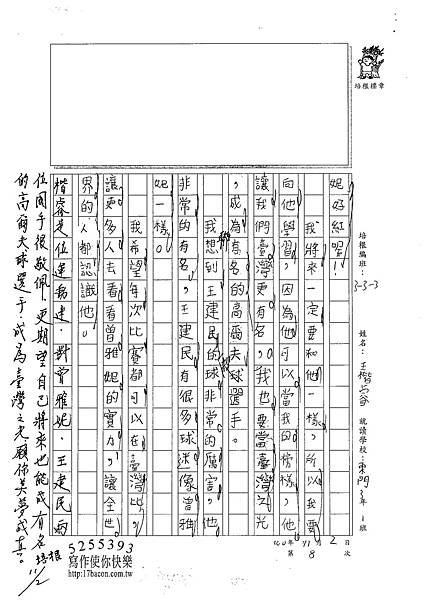 培根標章
培根編班：3-3-3
姓名：王楷睿
就讀學校：東門 3年 1班
100年 11月 2日
第 8 次
妮好紅喔！
我將來一定要和他一樣，所以我要
向他學習，因為他可以當我的榜樣，他
讓我們臺灣更有名，我也要當臺灣之光
，成為有名的高爾夫球選手。
我想到王建民的球非常的厲害，他
非常的有名，王建民有很多球迷像曾雅
妮一樣。
我希望每次比賽都可以在臺灣比，
讓更多人去看看曾雅妮的實力，讓全世
界的人都認識他。
楷睿是位運動迷，對曾雅妮、王建民兩
位國手很敬佩，更期望自己將來也能成有名
的高爾夫球選手，成為臺灣之光，願你美夢成真。
培根
11/2
5255393
寫作使你快樂
http://17bacon.com.tw